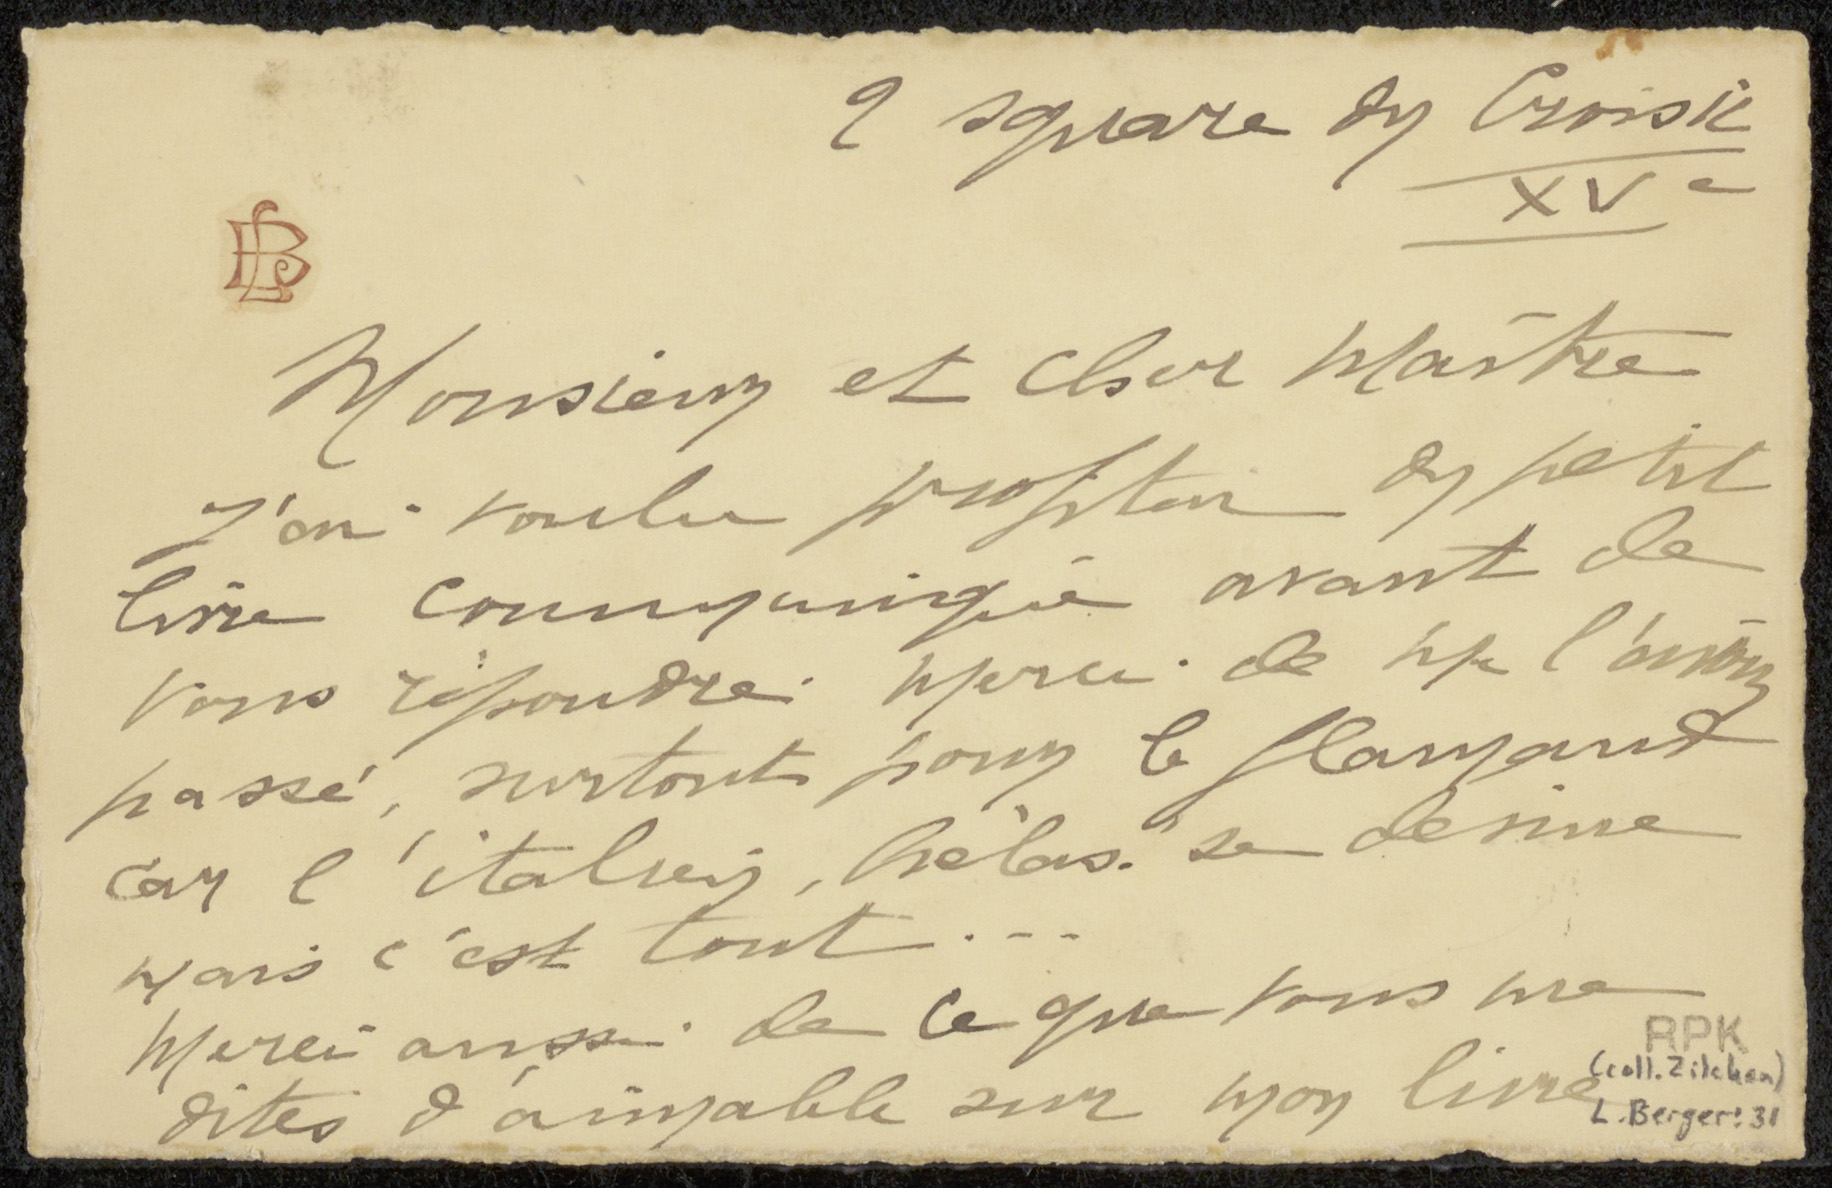 2 square du Croisic
XVe
LB
Monsieur et cher Maître
J'ai voulu profiter du petit
livre communiqué avant de
vous répondre. Merci de me l'avoir
passé, surtout pour le flamand
car l'italien, hélas. se devine
mais c'est tout ...
Merci aussi de ce que vous me
dites d'aimable sur mon livre
RPK
(coll. Zilcken)
L. Berger: 31